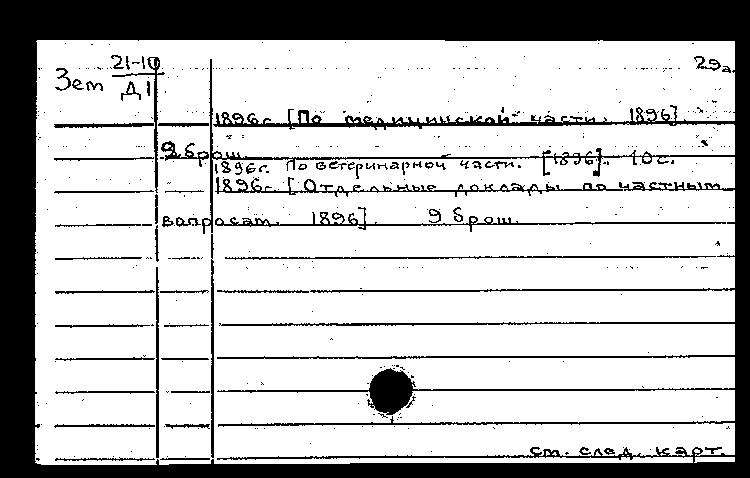 Зем 21-10
Д1
29а
1896г. [По медицинской части. 1896]
9 брош.
1896г. По ветеринарной части. [1896]. 10с.
1896г. [Отдельные доклады по частным
вопросам. 1896]. 9 брош.
см. след. карт.